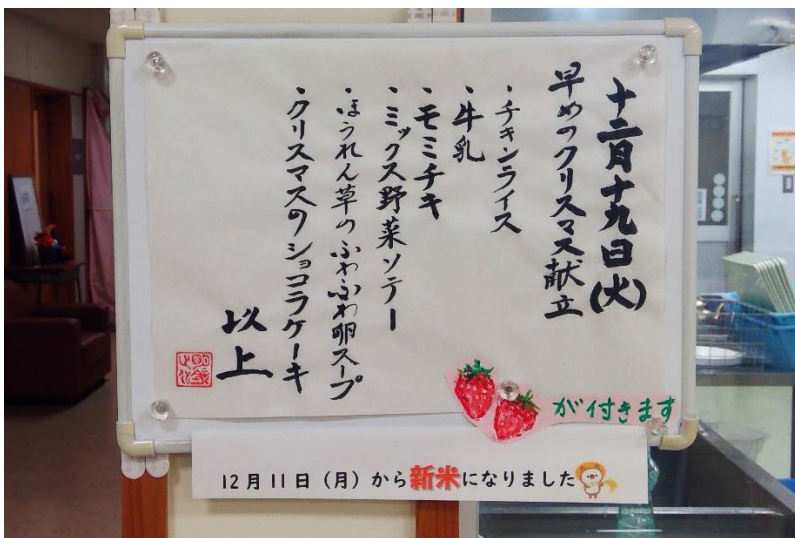 十二月十九日(火)
早めのクリスマス献立
・チキンライス
・牛乳
・モミチキ
・ミックス野菜ソテー
・ほうれん草のふわふわ卵スープ
・クリスマスのショコラケーキ
以上
が付きます
12月11日(月)から新米になりました